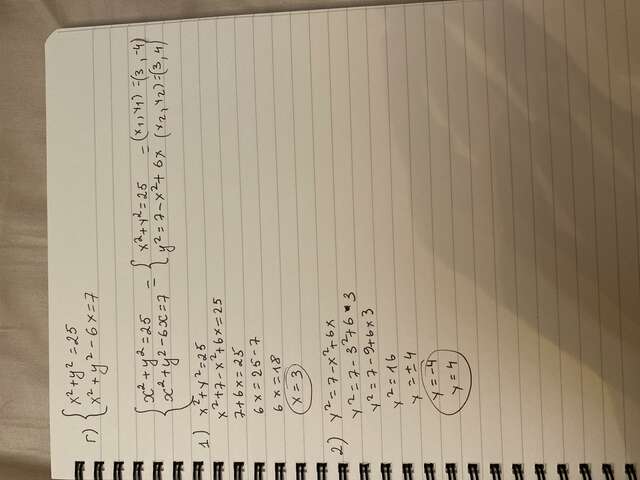 г) { x²+y²=25
x²+y²-6x=7
{ x²+y²=25 - { x²+y²=25 =(x₁,y₁)=(3,-4)
x²+y²-6x=7 - y²=7-x²+6x (x₂,y₂)=(3,4)
1) x²+y²=25
x²+7-x²+6x=25
7+6x=25
6x=25-7
6x=18
x=3
2) y²=7-x²+6x
y²=7-3²+6*3
y²=7-9+6×3
y²=16
y=±4
y=-4
y=4